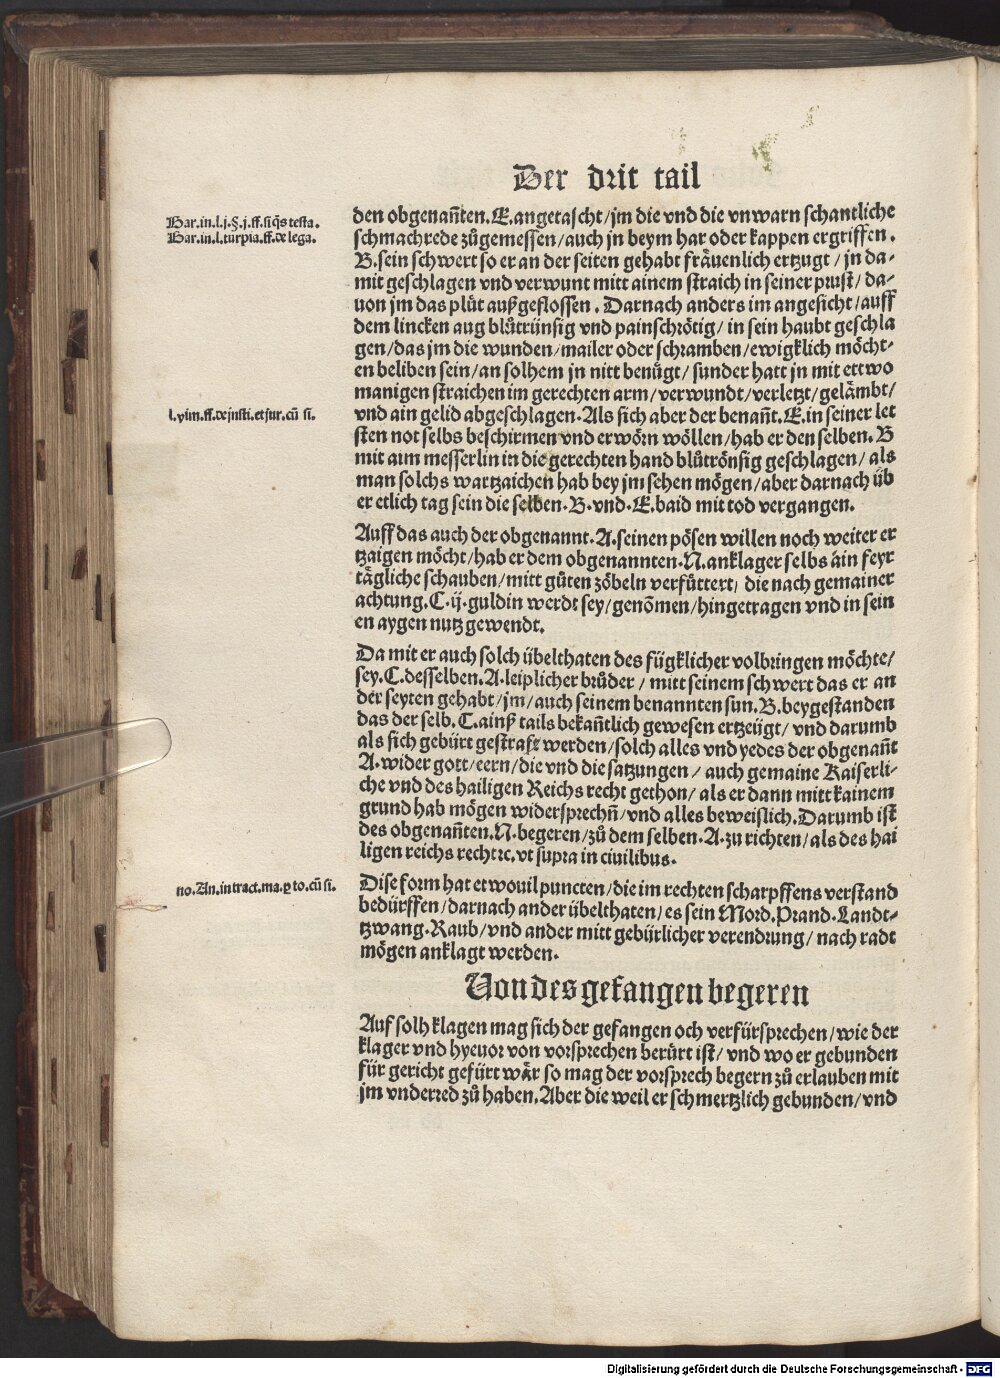 Der drit tail
Bar.in.l.j.§.j.ff.si q̄s testa.
Bar.in.l.turpia.ff.de lega.
den obgenan̄ten.E.angetascht/jm die vnd die vnwarn schantliche
schmachrede zůgemessen/auch jn beym har oder kappen ergriffen.
B.sein schwert so er an der seiten gehabt fräuenlich ertzugt/jn da-
mit geschlagen vnd verwunt mitt ainem straich in seiner prust/da-
uon jm das plůt außgeflossen. Darnach anders im angesicht/auff
dem lincken aug blůtrünsig vnd painschrötig/in sein haubt geschla
gen/das jm die wunden/mailer oder schramben/ewigklich möcht-
en beliben sein/an solhem jn nitt benügt/sunder hatt jn mit ettwo
manigen straichen im gerechten arm/verwundt/verletzt/gelämbt/
l.vim.ff.de justi.et jur.cū si.
vnd ain gelid abgeschlagen.Als sich aber der benan̄t.E.in seiner let
sten not selbs beschirmen vnd erwörn wöllen/hab er den selben.B
mit aim messerlin in die gerechten hand blůtrönsig geschlagen/als
man solchs wartzaichen hab bey jm sehen mögen/aber darnach üb
er etlich tag sein die selben.B.vnd.E.baid mit tod vergangen.
Auff das auch der obgenannt.A.seinen pösen willen noch weiter er
tzaigen möcht/hab er dem obgenannten.N.anklager selbs äin feyr
tägliche schauben/mitt gůten zöbeln verfüttert/die nach gemainer
achtung.C.ij.guldin werdt sey/genōmen/hingetragen vnd in sein
en aygen nutz gewendt.
Da mit er auch solch übelthaten des fügklicher volbringen möchte/
sey.C.desselben.A.leiplicher brůder/mitt seinem schwert das er an
der seyten gehabt/jm/auch seinem benannten sun.B.beygestanden
das der selb.C.ainß tails bekan̄tlich gewesen ertzeügt/vnd darumb
als sich gebürt gestraft werden/solch alles vnd yedes der obgenan̄t
A.wider gott/eern/die vnd die satzungen/auch gemaine Kaiserli-
che vnd des hailigen Reichs recht gethon/als er dann mitt kainem
grund hab mögen widersprechn̄/vnd alles beweislich.Darumb ist
des obgenan̄ten.N.begeren/zů dem selben.A.zu richten/als des hai
ligen reichs recht ꝛc.vt supra in ciuilibus.
no.An.in tract.ma.ꝑ to.cū si.
Dise form hat etwouil puncten/die im rechten scharpffens verstand
bedürffen/darnach ander übelthaten/es sein Mord.Prand.Landt-
tzwang.Raub/vnd ander mitt gebürlicher verendrung/nach radt
mögen anklagt werden.
Von des gefangen begeren
Auf solh klagen mag sich der gefangen och verfürsprechen/wie der
klager vnd hyeuor von vorsprechen berürt ist/vnd wo er gebunden
für gericht gefürt wär so mag der vorsprech begern zů erlauben mit
jm vnderred zů haben.Aber die weil er schmertzlich gebunden/vnd
Digitalisierung gefördert durch die Deutsche Forschungsgemeinschaft - DFG